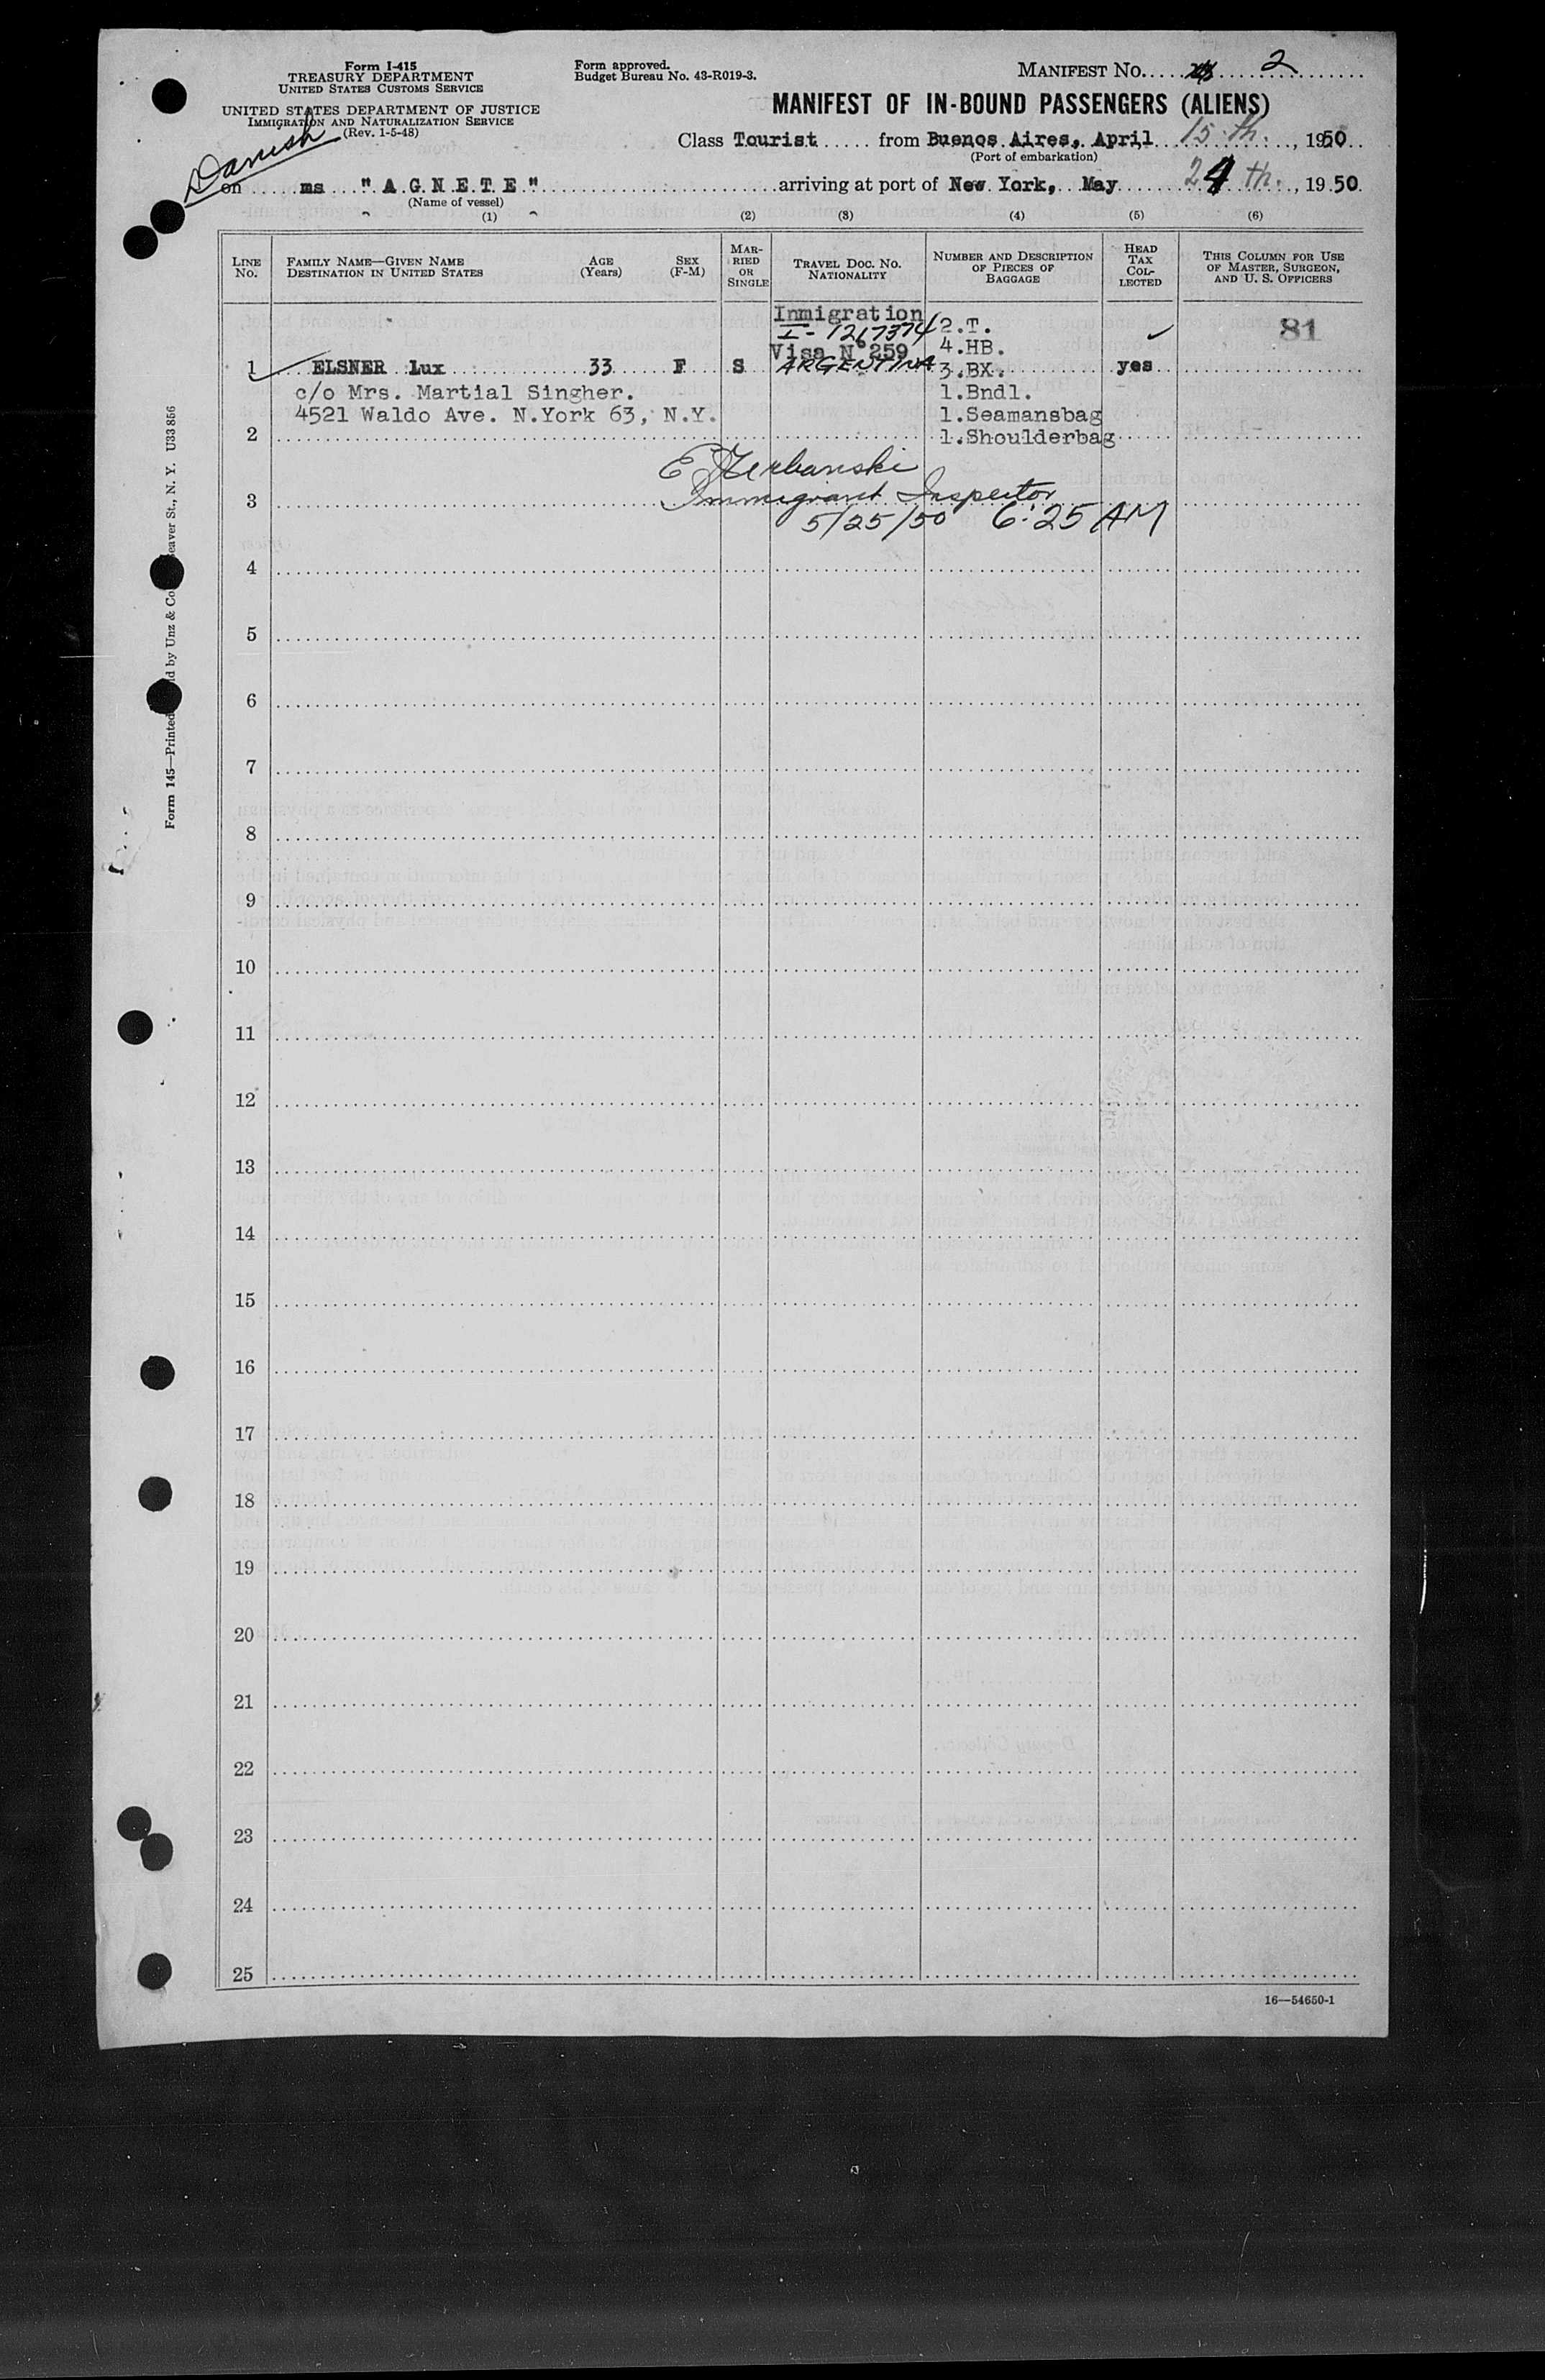 Form I-415
TREASURY DEPARTMENT
UNITED STATES CUSTOMS SERVICE
UNITED STATES DEPARTMENT OF JUSTICE
IMMIGRATION AND NATURALIZATION SERVICE
(Rev. 1-5-48)
Danish
Form approved.
Budget Bureau No. 43-R019-3.
MANIFEST NO. 2
MANIFEST OF IN-BOUND PASSENGERS (ALIENS)
Class Tourist from Buenos Aires, April 15.th., 1950
(Port of embarkation)
on ms "AGNETE" arriving at port of New York, May 24 th., 1950
(Name of vessel)
(1) (2) (3) (4) (5) (6)
LINE NO.
FAMILY NAME—GIVEN NAME
DESTINATION IN UNITED STATES
AGE
(Years)
SEX
(F-M)
MAR-
RIED
OR
SINGLE
TRAVEL DOC. NO.
NATIONALITY
NUMBER AND DESCRIPTION
OF PIECES OF
BAGGAGE
HEAD
TAX
COL-
LECTED
THIS COLUMN FOR USE
OF MASTER, SURGEON,
AND U. S. OFFICERS
Inmigration
I-1217374 2.T. 81
Visa Nº 259 4.HB.
1 ELSNER Lux 33 F S ARGENTINA 3.BX. yes
c/o Mrs. Martial Singher. 1.Bndl.
4521 Waldo Ave. N.York 63, N.Y. 1.Seamansbag
2 1.Shoulderbag
Immigrant Inspector
3
5/25/50 6:25 AM
4
5
6
7
8
9
10
11
12
13
14
15
16
17
18
19
20
21
22
23
24
25
16—54650-1
Form 145—Printed by Unz & Co. Beaver St., N. Y. U33856